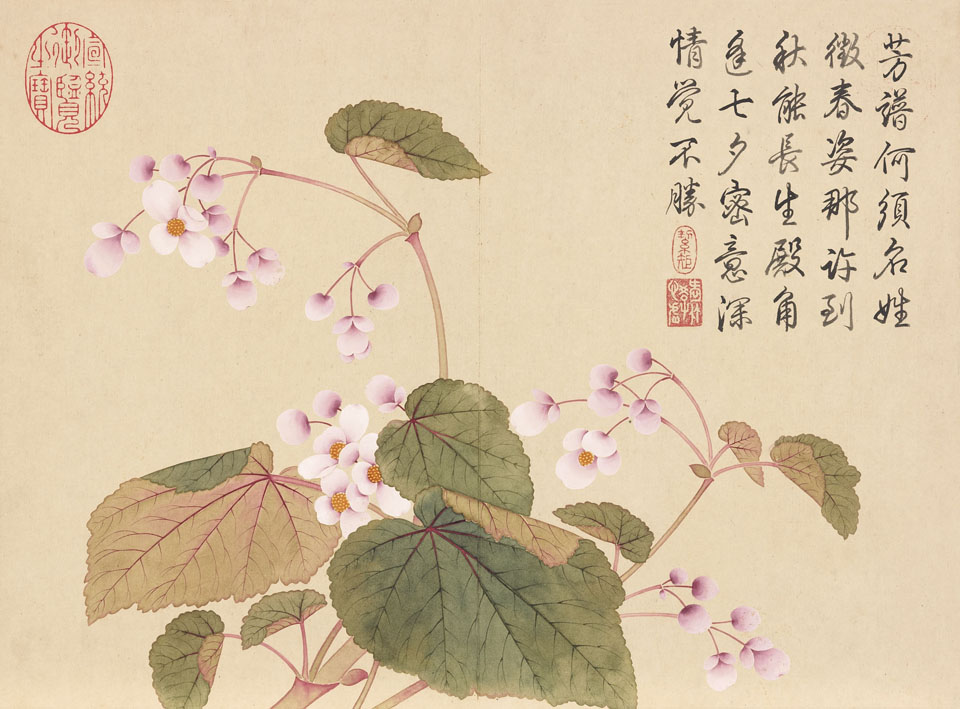 芳譜何須名姓
徵春姿那許到
秋能長生殿角
逢七夕密意深
情覺不勝
宣統御覽之寶